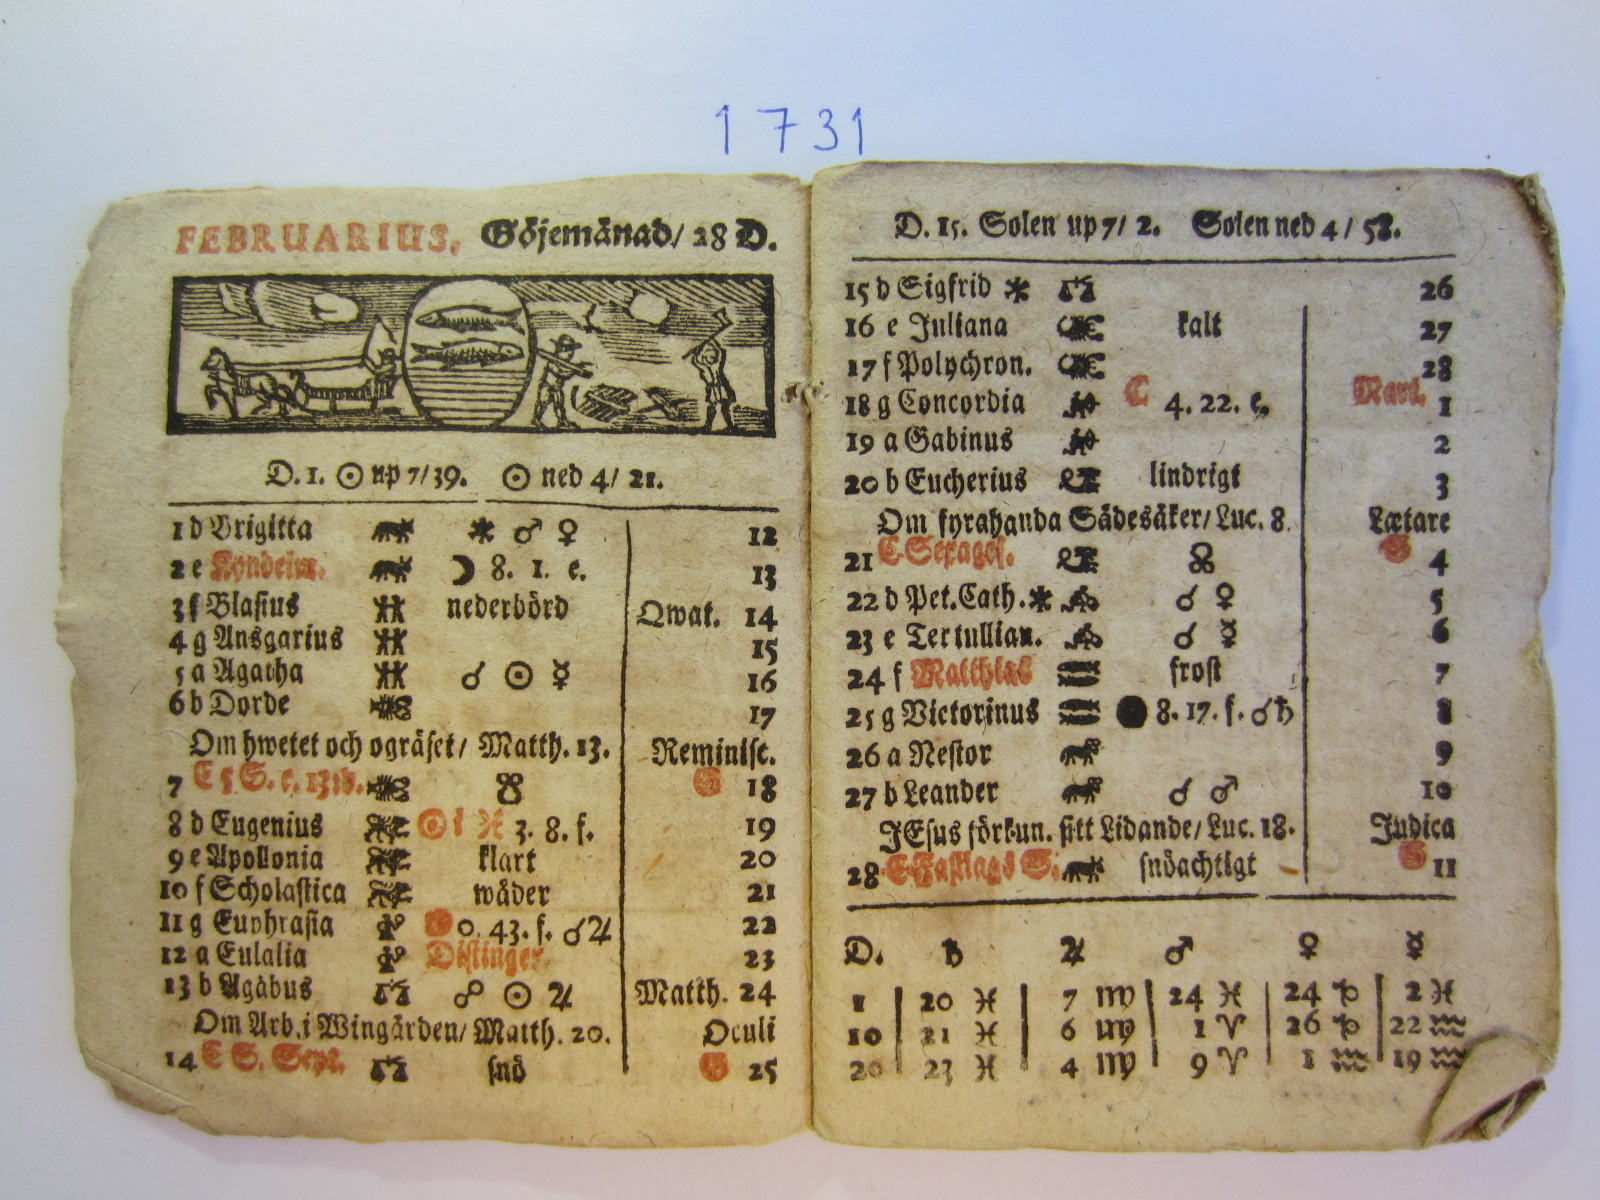 1731
FEBRUARIUS, Göjemånad/ 28 D.
D. 1. ☉ up 7/39. ☉ ned 4/ 21.
1 d Brigitta ⚹ ♂ ♀ 12
2 e Kyndelm. ☽ 8. 1. e. 13
3 f Blasius nederbörd Qwat. 14
4 g Ansgarius 15
5 a Agatha ☌ ☉ ☿ 16
6 b Dorde 17
Om hwetet och ogräset/ Matth. 13. Reminisc.
7 E 5 S. e. 13td. ☋ G 18
8 d Eugenius ☉ i ♓ 3. 8. f. 19
9 e Apollonia klart 20
10 f Scholastica wäder 21
11 g Euphrasia 0. 43. f. ☌ ♃ 22
12 a Eulalia Distinger 23
13 b Agabus ☍ ☉ ♃ Matth. 24
Om Arb. i Wingården/ Matth. 20. Oculi
14 E S. Sept. snö G 25
D. 15. Solen up 7/ 2. Solen ned 4/ 58.
15 d Sigfrid ⚹ 26
16 e Juliana kalt 27
17 f Polychron. 28
18 g Concordia 4. 22. e. Mart. 1
19 a Gabinus 2
20 b Eucherius lindrigt 3
Om fyrahanda Sädesåker/ Luc. 8. Lætare
21 E Sexages. ☊ G 4
22 d Pet. Cath. ⚹ ☌ ♀ 5
23 e Tertullian. ☌ ☿ 6
24 f Matthias frost 7
25 g Victorinus ● 8. 17. f. ☌ ♄ 8
26 a Nestor 9
27 b Leander ☌ ♂ 10
JEsus förkun. sitt Lidande/ Luc. 18. Judica
28 E Fastlags S. snöachtigt G 11
D. ♄ ♃ ♂ ♀ ☿
1 20 ♓ 7 ♍ 24 ♓ 24 ♑ 2 ♓
10 21 ♓ 6 ♍ 1 ♈ 26 ♑ 22 ♒
20 23 ♓ 4 ♍ 9 ♈ 1 ♒ 19 ♒